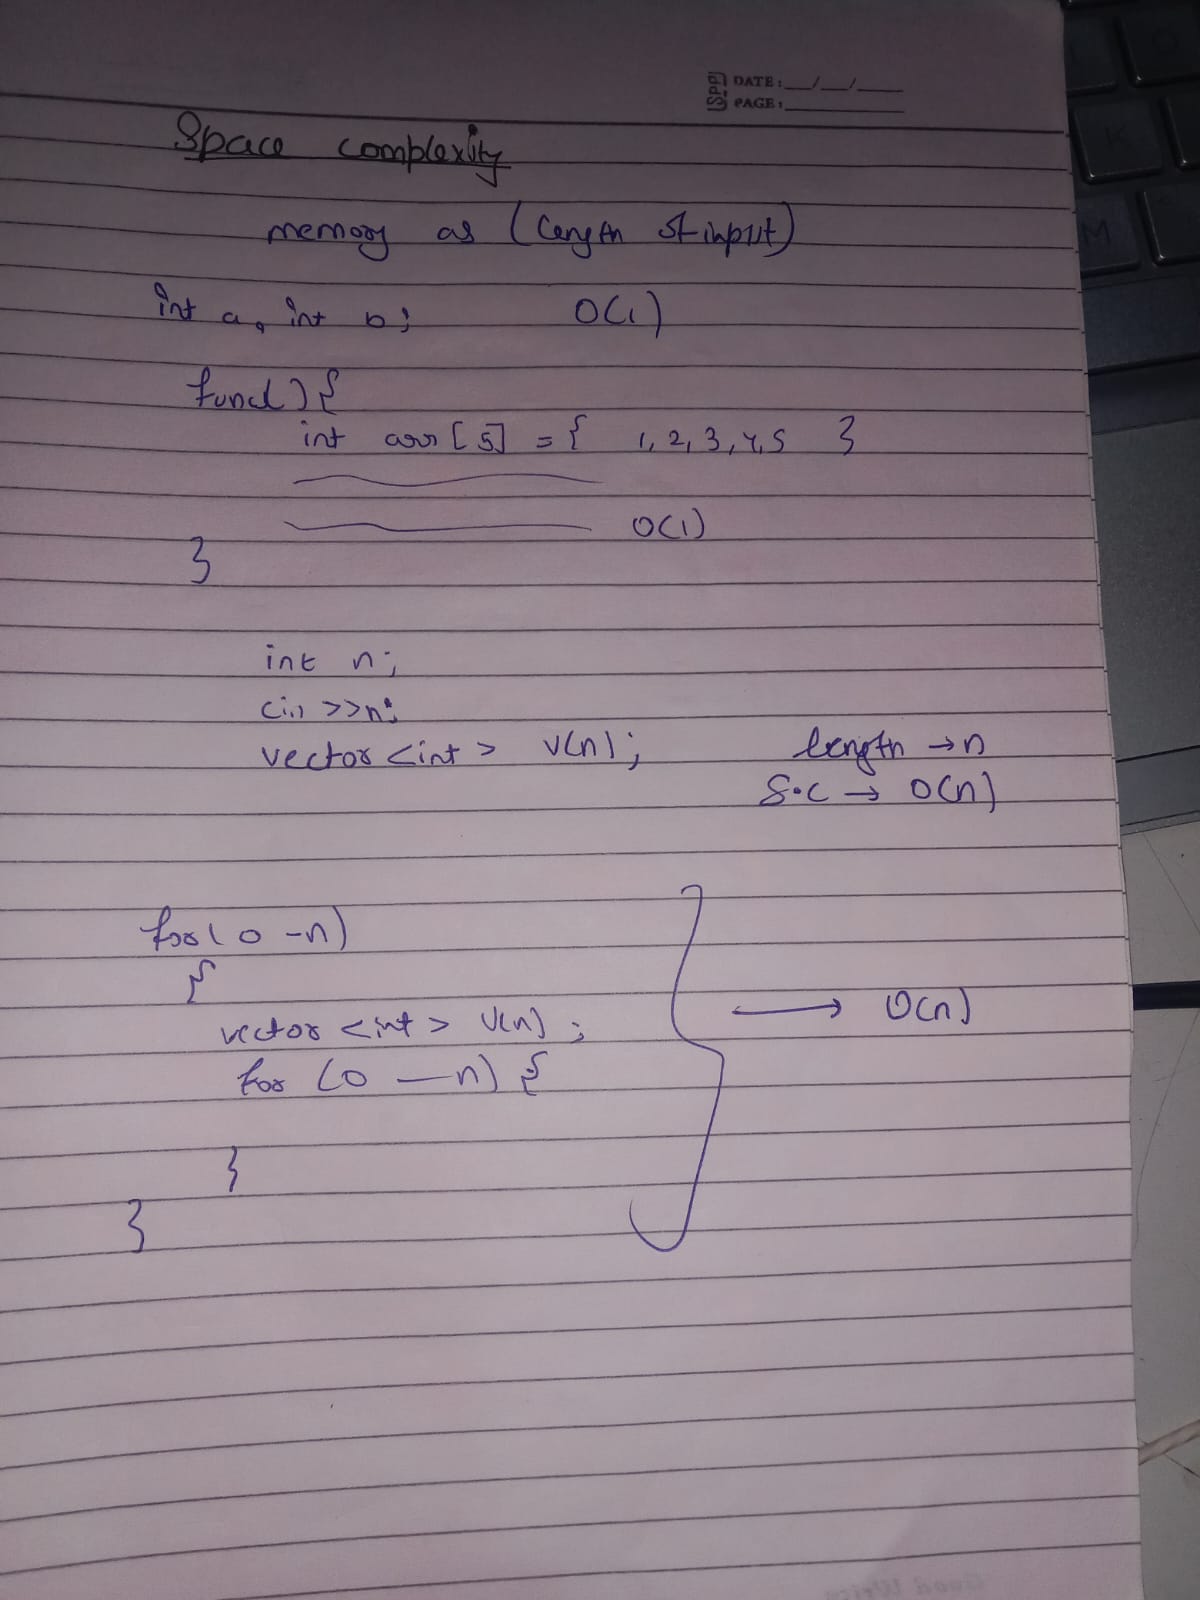 SPP DATE: __/__/____
PAGE:
Space complexity
memory as (length of input)
int a, int b; O(1)
func(){
int arr[5] = { 1, 2, 3, 4, 5 }
O(1)
}
int n;
cin >>n;
vector <int> v(n); length → n
S.C → O(n)
for(0 -n)
{
vector <int> v(n) ; → O(n)
for (0 — n) {
}
}